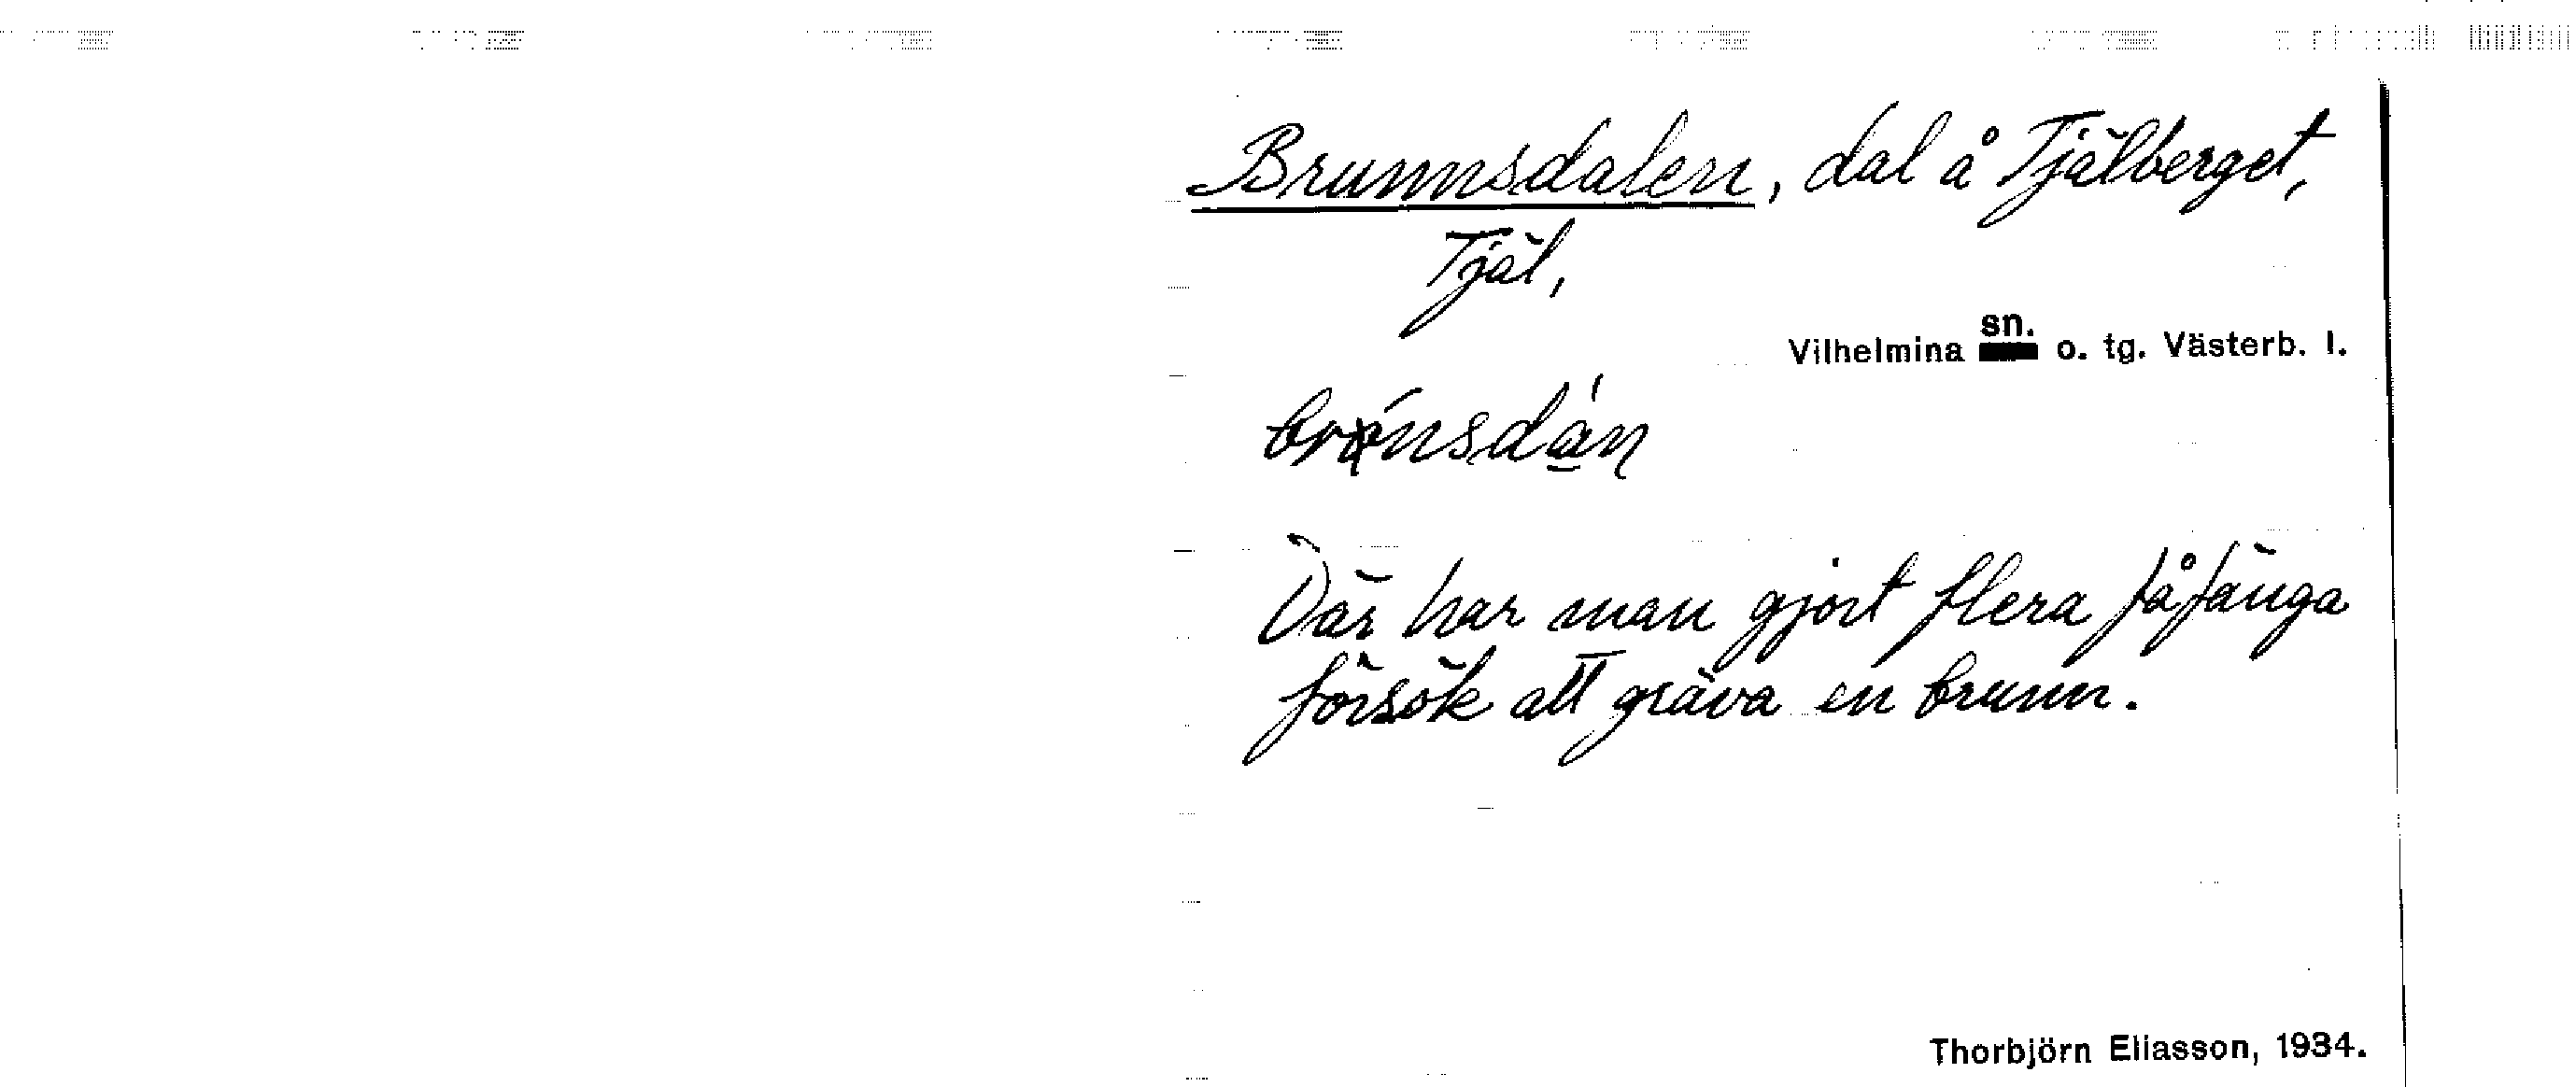 Brunnsdalen, dal å Tjälberget,
Tjäl,
Vilhelmina sn. o. tg. Västerb. l.
Där har man gjort flera fåfänga
försök att gräva en brunn.
Thorbjörn Eliasson, 1934.